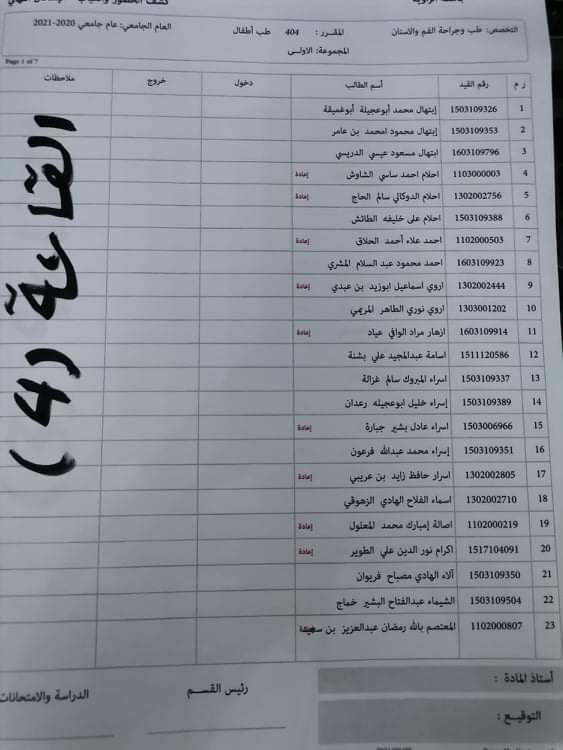 كشف الحضور والغياب
التخصص: طب وجراحة الفم والاسنان المقرر : 404 طب أطفال العام الجامعي: عام جامعي 2020-2021
المجموعة: الاولى
Page 1 of 7
ر م رقم القيد أسم الطالب دخول خروج ملاحظات
1 1503109326 إبتهال محمد أبوعجيلة أبوغميقة
2 1503109353 إبتهال محمود امحمد بن عامر
3 1603109796 ابتهال مسعود عيسي الدريسي
4 1103000003 احلام احمد ساسي الشاوش إعادة
5 1302002756 احلام الدوكالي سالم الحاج إعادة
6 1503109388 احلام على خليفه الطائش
7 1102000503 احمد علاء أحمد الحلاق إعادة
8 1603109923 احمد محمود عبد السلام المشري
9 1302002444 اروي اسماعيل ابوزيد بن عبدي إعادة
10 1303001202 اروي نوري الطاهر المريمي
11 1603109914 ازهار مراد الوافي عياد إعادة
12 1511120586 اسامة عبدالمجيد علي بشنة
13 1503109337 اسراء المبروك سالم غزالة
14 1503109389 إسراء خليل ابوعجيله رعدان
15 1503006966 اسراء عادل بشير جبارة إعادة
16 1503109351 إسراء محمد عبدالله فرعون
17 1302002805 اسرار حافظ زايد بن عريبي إعادة
18 1302002710 اسماء الفلاح الهادي الزهوقي
19 1102000219 اصالة إمبارك محمد المعلول إعادة
20 1517104091 اكرام نور الدين علي الطوير إعادة
21 1503109350 آلاء الهادي مصباح فريوان
22 1503109504 الشيماء عبدالفتاح البشير خماج
23 1102000807 المعتصم بالله رمضان عبدالعزيز بن
القاعة (4)
أستاذ المادة :
رئيس القسم
الدراسة والامتحانات
التوقيع :